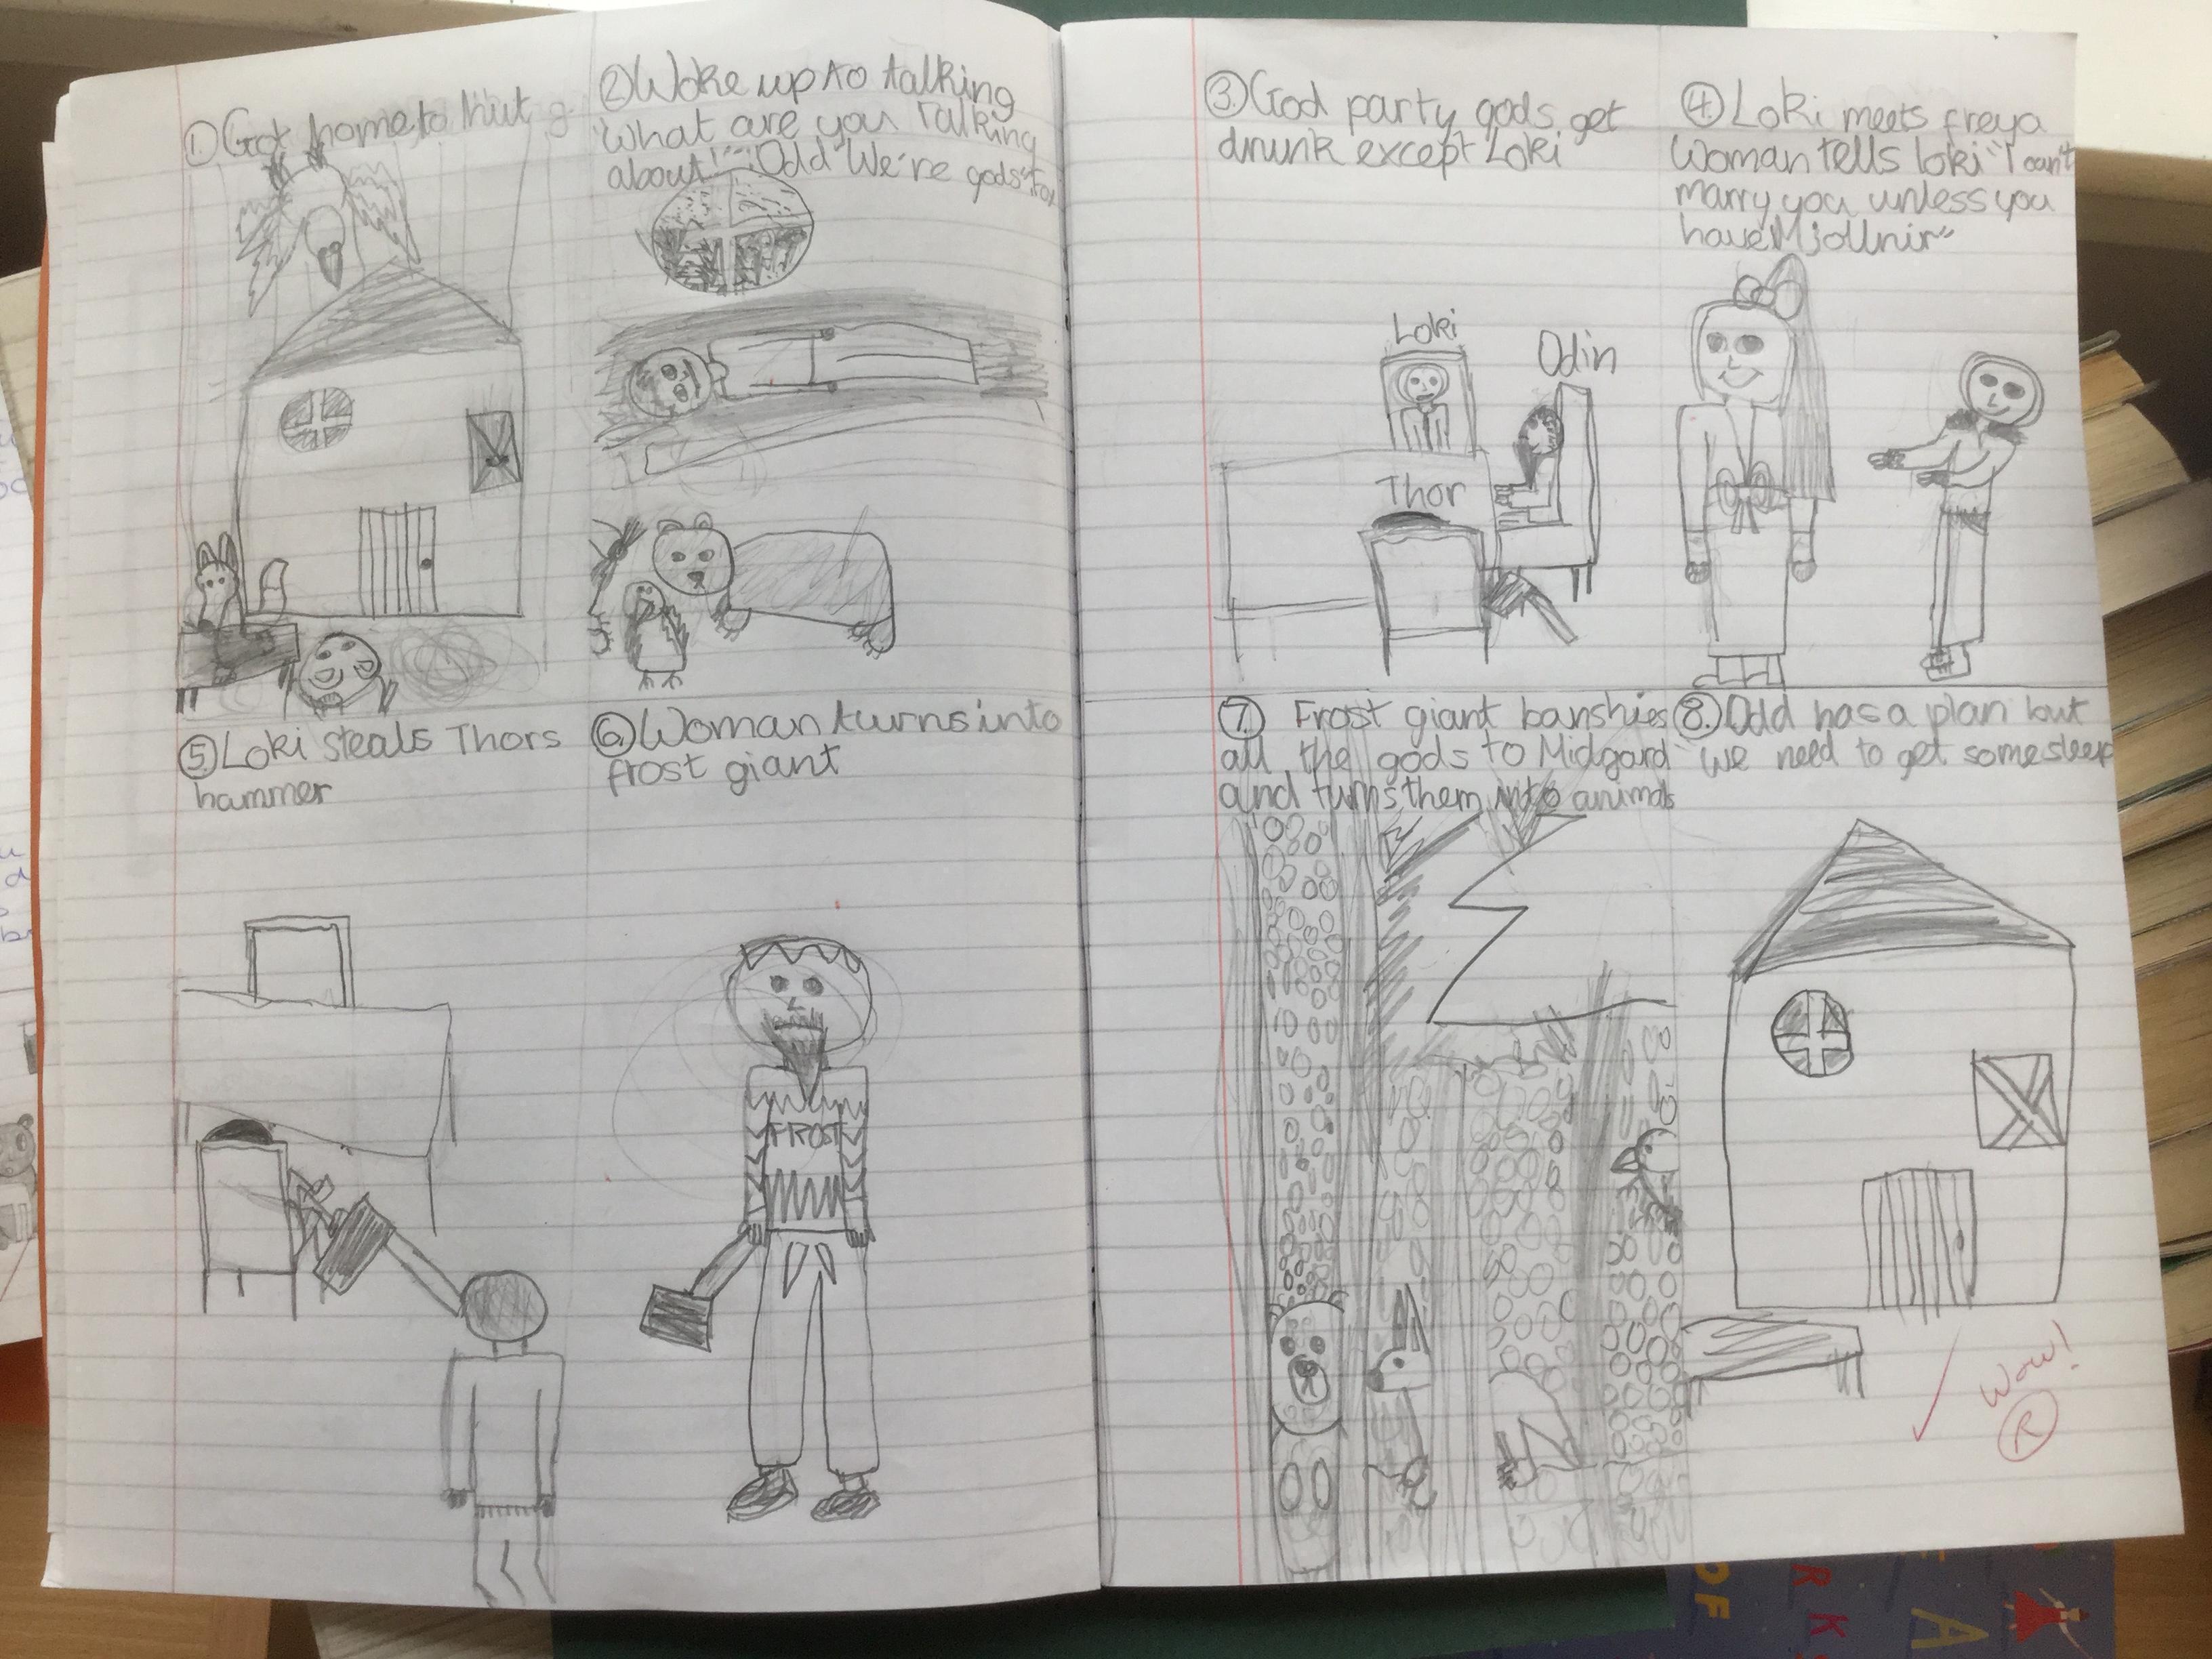 1. Got home to hut
2. Woke up to talking
"What are you Talking
about!" "Odd We're gods" Fox
3. God party gods get
drunk except Loki
4. Loki meets freya
Woman tells loki "I can't
marry you unless you
have Mjollnir"
Loki
Odin
Thor
5. Loki steals Thors
hammer
6. Woman turns into
frost giant
FROST
7. Frost giant banshies
all the gods to Midgard
and turns them into animals
8. Odd has a plan but
"We need to get some sleep
Wow!
R